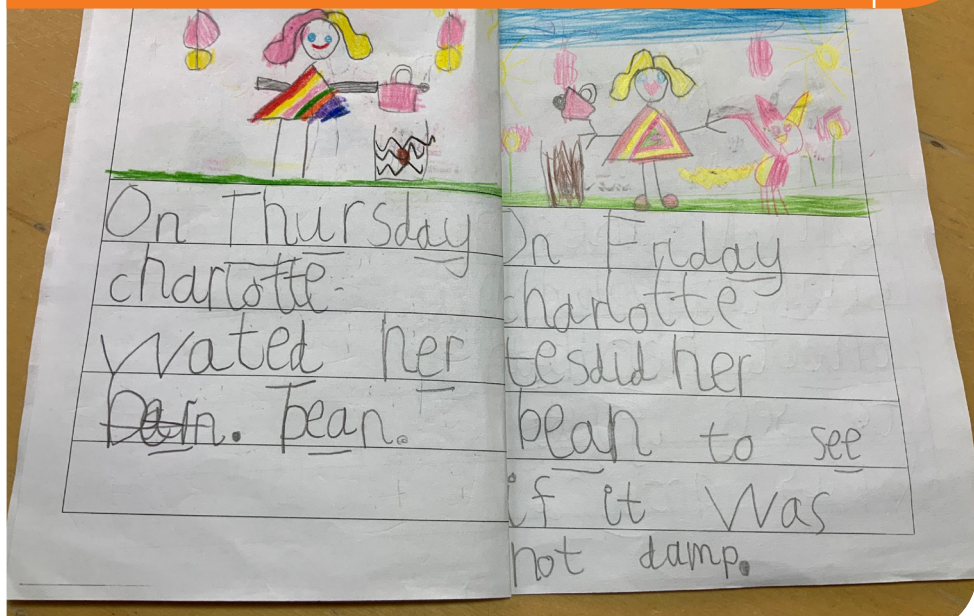 On Thursday
charlotte
wated her
bean.
On Friday
charlotte
tesdid her
bean to see
if it was
not damp.